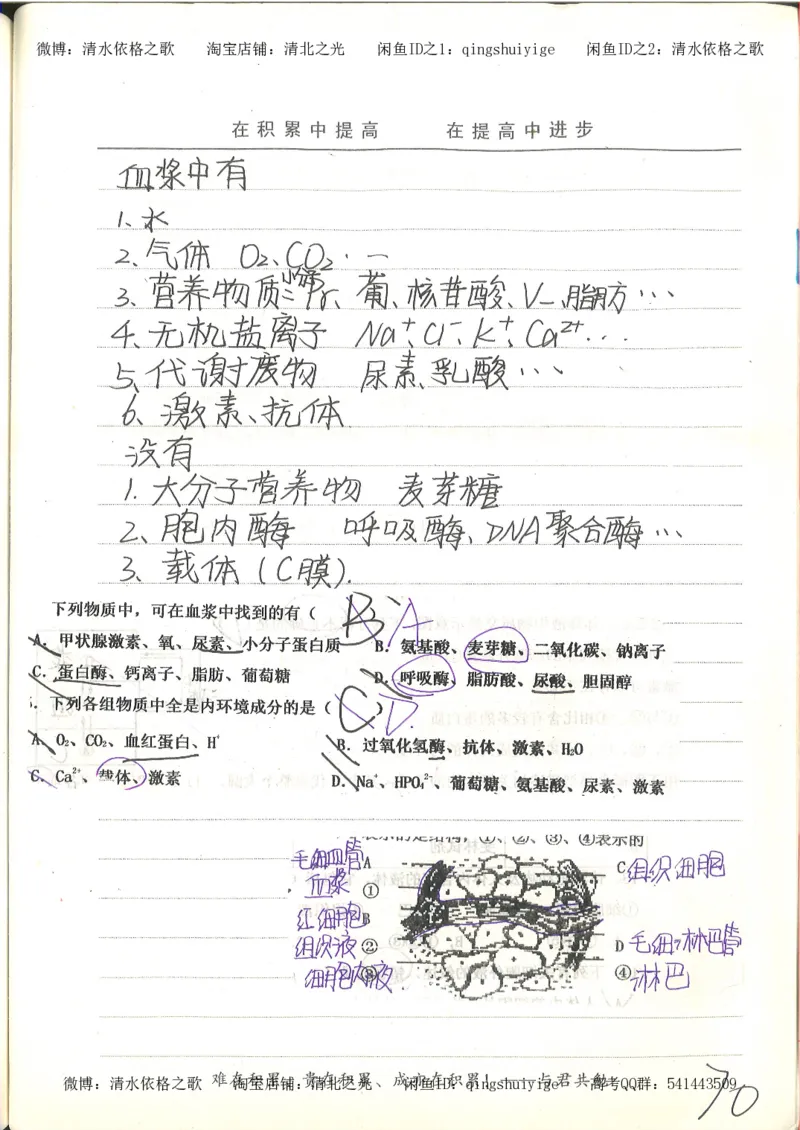 微博：清水依格之歌 淘宝店铺：清北之光 闲鱼ID之1：qingshuiyige 闲鱼ID之2：清水依格之歌
在积累中提高 在提高中进步
血浆中有
1、水
2、气体 O₂、CO₂…
3、营养物质：小分子Pr、葡、核苷酸、V、脂肪…
4、无机盐离子 Na⁺、Cl⁻、K⁺、Ca²⁺…
5、代谢废物 尿素、乳酸…
6、激素、抗体
没有
1、大分子营养物 麦芽糖
2、胞内酶 呼吸酶、DNA聚合酶…
3、载体（C膜）.
下列物质中，可在血浆中找到的有（ B A
A．甲状腺激素、氧、尿素、小分子蛋白质 B．氨基酸、麦芽糖、二氧化碳、钠离子
C．蛋白酶、钙离子、脂肪、葡萄糖 D．呼吸酶、脂肪酸、尿酸、胆固醇
．下列各组物质中全是内环境成分的是（ C D ）
A．O₂、CO₂、血红蛋白、H⁺ B．过氧化氢酶、抗体、激素、H₂O
C．Ca²⁺、载体、激素 D．Na⁺、HPO₄²⁻、葡萄糖、氨基酸、尿素、激素
表示的是结构，①、②、③、④表示的
毛细血管 A C 组织细胞
血浆 ①
红细胞 B
组织液 ② D 毛细淋巴管
细胞内液 ③ ④ 淋巴
难在积累、贵在积累、成功在积累！——与君共勉
微博：清水依格之歌 淘宝店铺：清北之光 闲鱼ID：qingshuiyige 高考QQ群：541443509
70